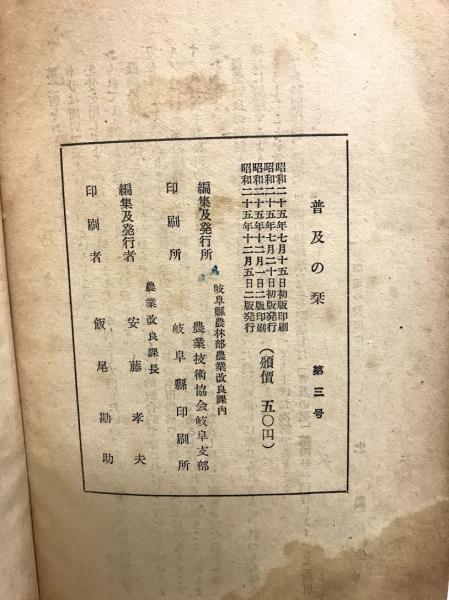 普及の栞 第三号
昭和二十五年七月十五日初版印刷
昭和二十五年七月二十日初版発行
昭和二十五年十二月一日二版印刷
昭和二十五年十二月五日二版発行
(頒價 五〇円)
岐阜縣農林部農業改良課内
編集及発行所 農業技術協会岐阜支部
印刷所 岐阜縣印刷所
農業改良課長
編集及発行者 安藤孝夫
印刷者 飯尾勘助